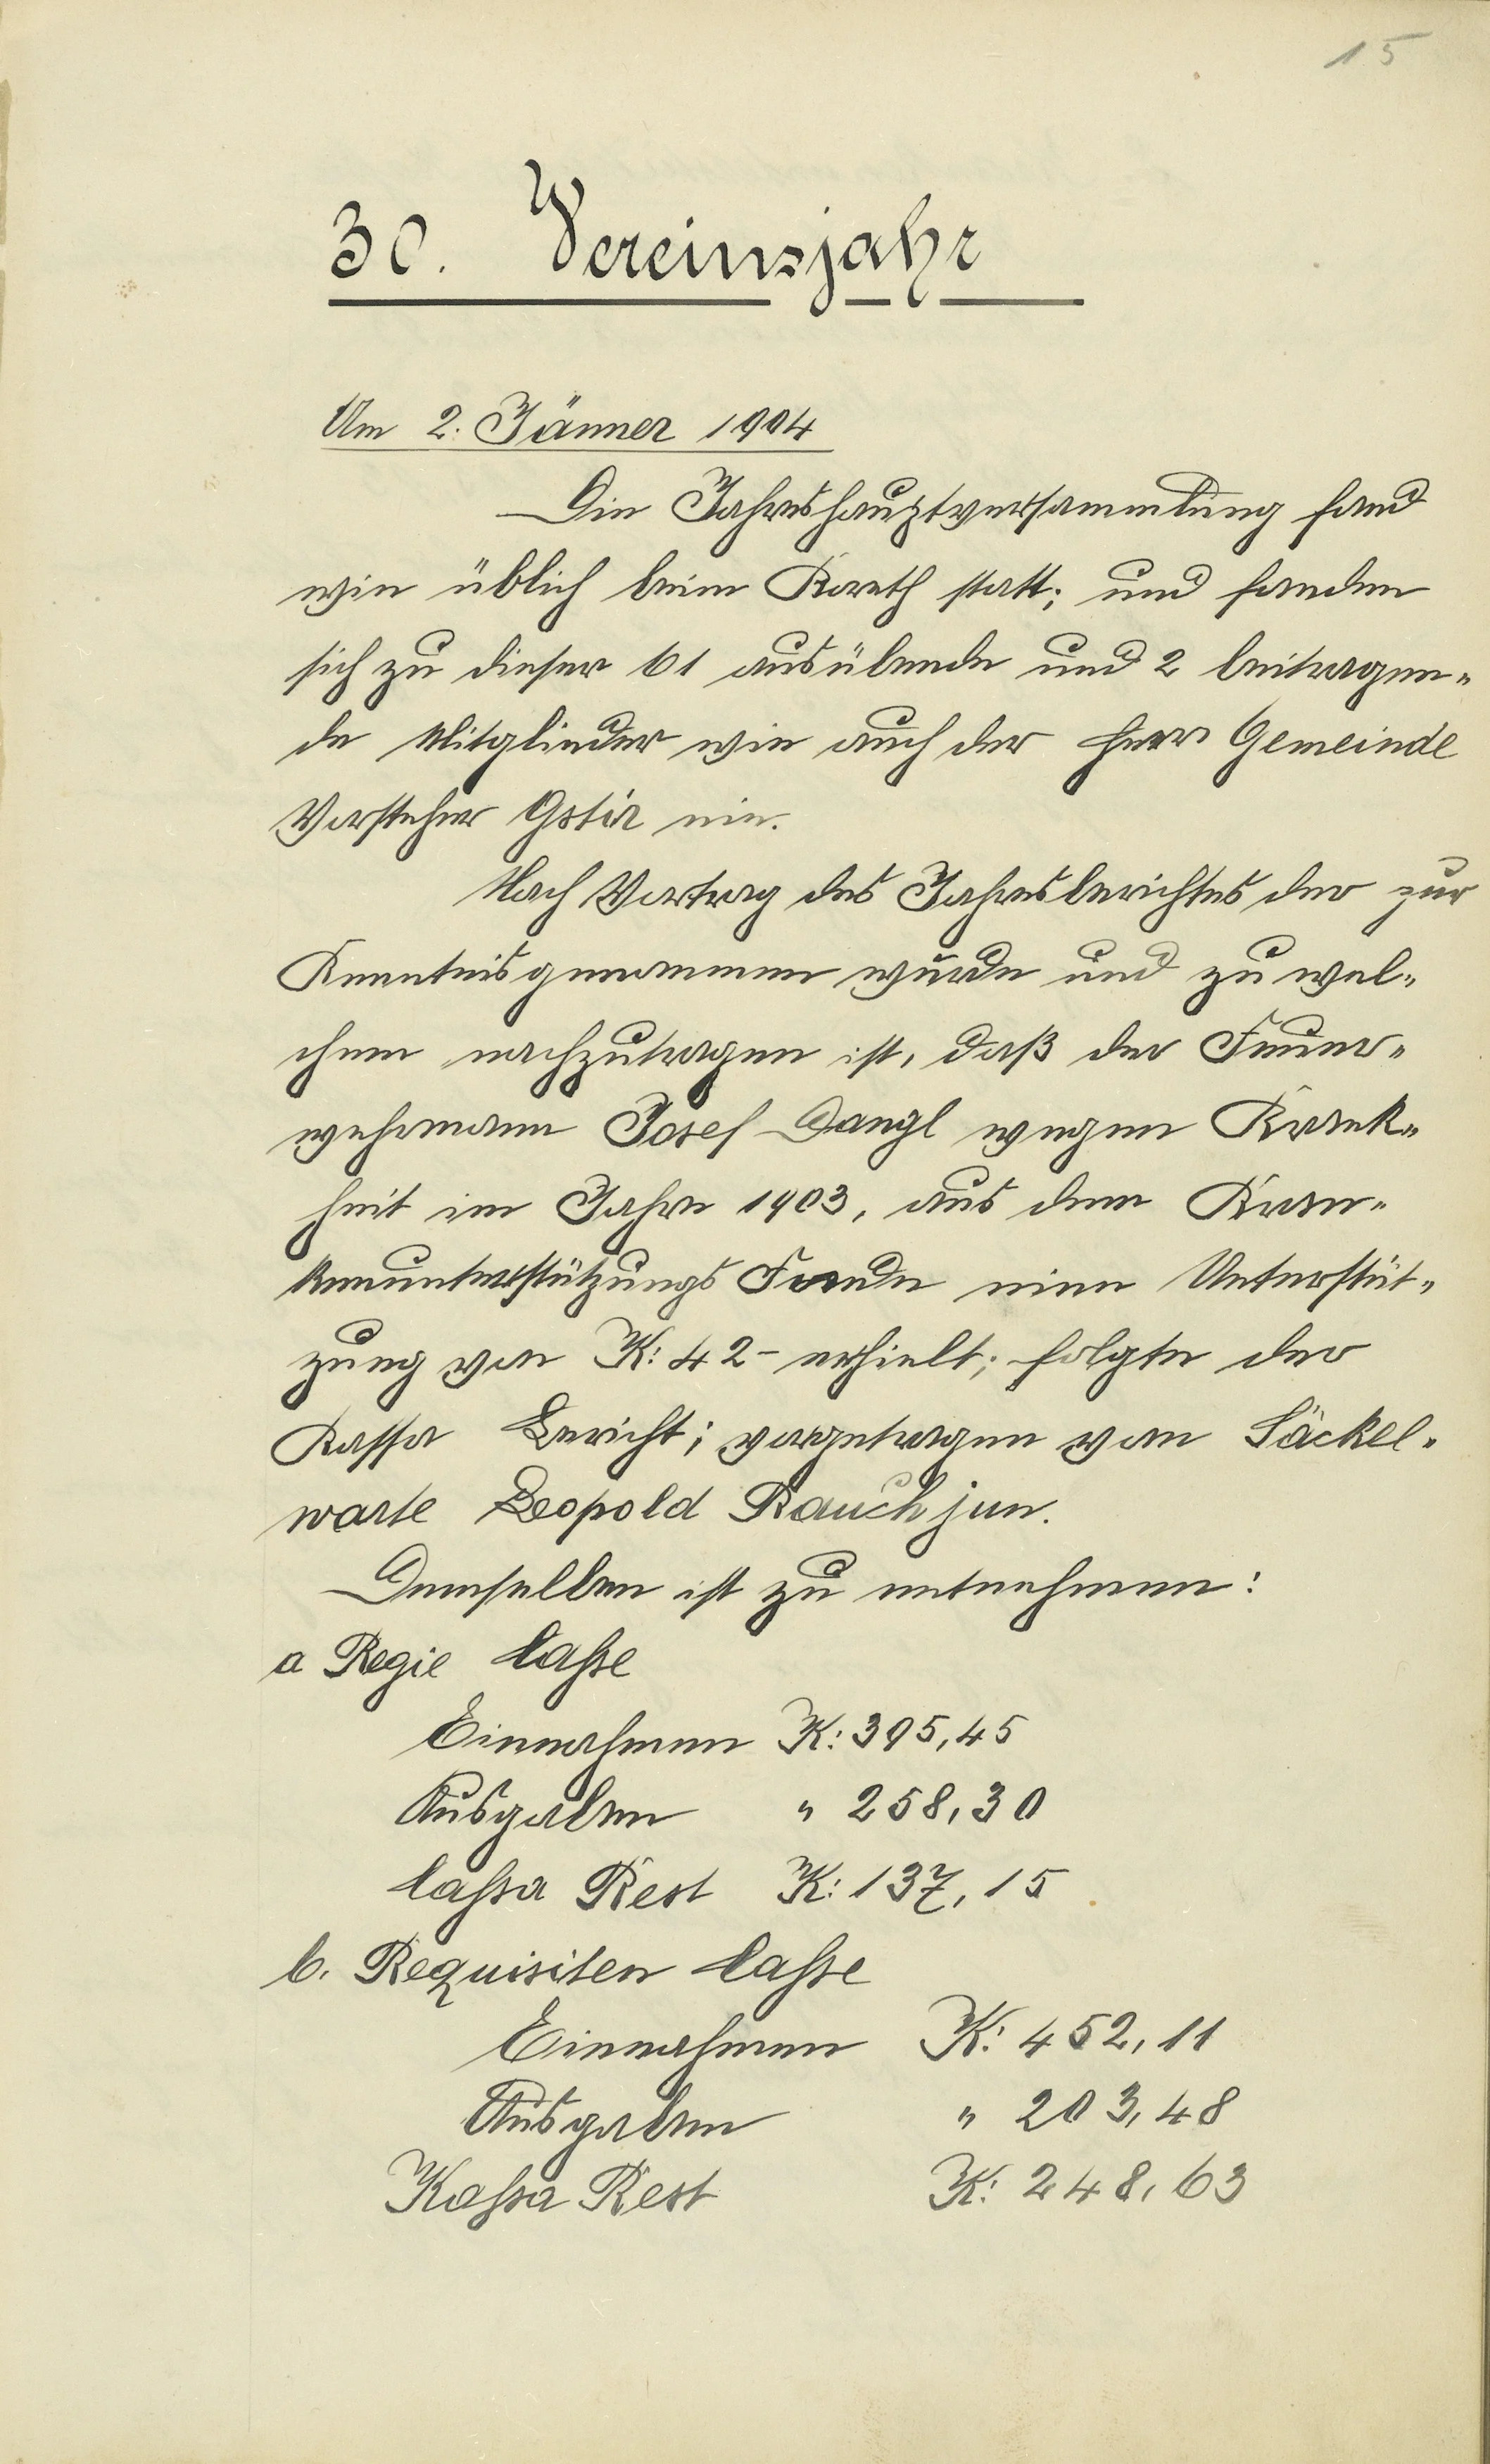 15
30. Vereinsjahr
Am 2. Jänner 1904
Die Jahreshauptversammlung fand
wie üblich beim Koreth statt; und fanden
sich zu dieser 61 ausübende und 2 beitragen=
de Mitglieder wie auch der Herr Gemeinde
Vorsteher Gstir ein.
Nach Vortrag des Jahresberichtes der zur
Kenntnis genommen wurde und zu wel=
chem nachzutragen ist, daß der Feuer=
wehrmann Josef Dangl wegen Krank=
heit im Jahre 1903, aus dem Kran=
kenunterstützungs Fonde eine Unterstüt=
zung von K: 42- erhielt; folgte der
Kassa Bericht; vorgetragen vom Säckel=
warte Leopold Rauch jun.
Demselben ist zu entnehmen:
a Regie Casse
Einnahmen K: 395,45
Ausgaben " 258,30
Cassa Rest K: 137,15
b. Requisiten Casse
Einnahmen K: 452,11
Ausgaben " 203,48
Kassa Rest K: 248,63